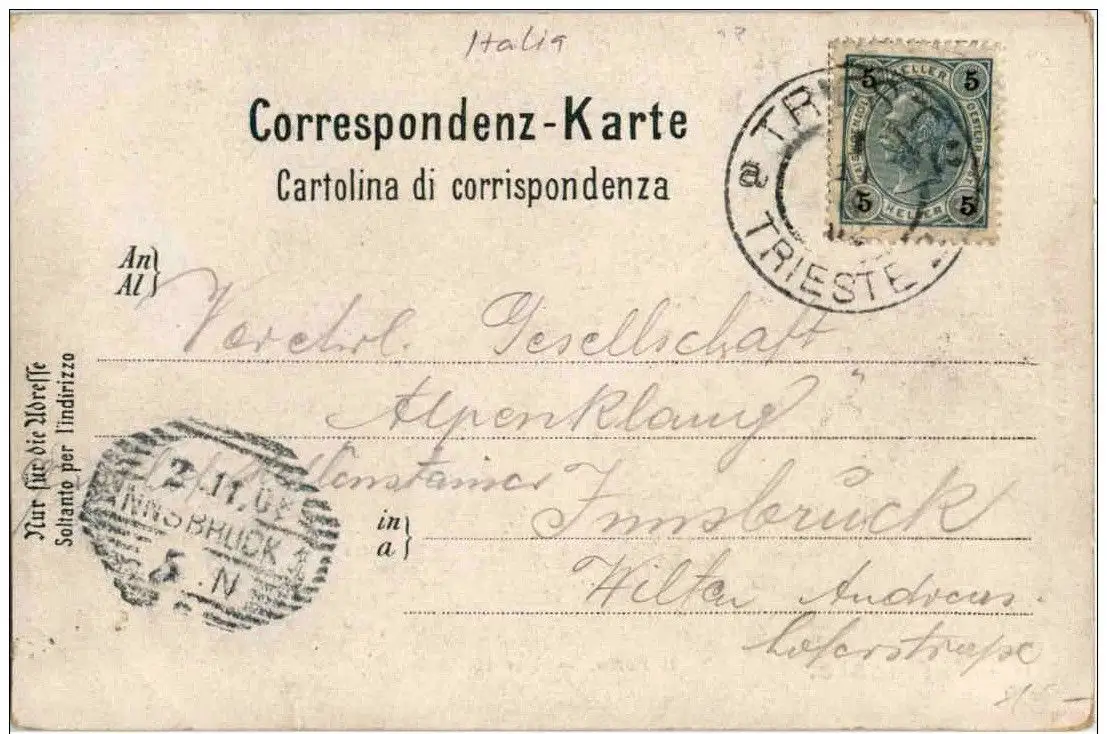 Italia
Correspondenz-Karte
Cartolina di corrispondenza
5 HELLER 5
5 HELLER 5
TRIEST
a TRIESTE
An
Al
Verehrl. Gesellschaft
Alpenklang"
Nur für die Adresse
Soltanto per l'indirizzo
2.11.0
INNSBRUCK 1
N
in
a
Innsbruck
Wilten Andreas
hoferstraße